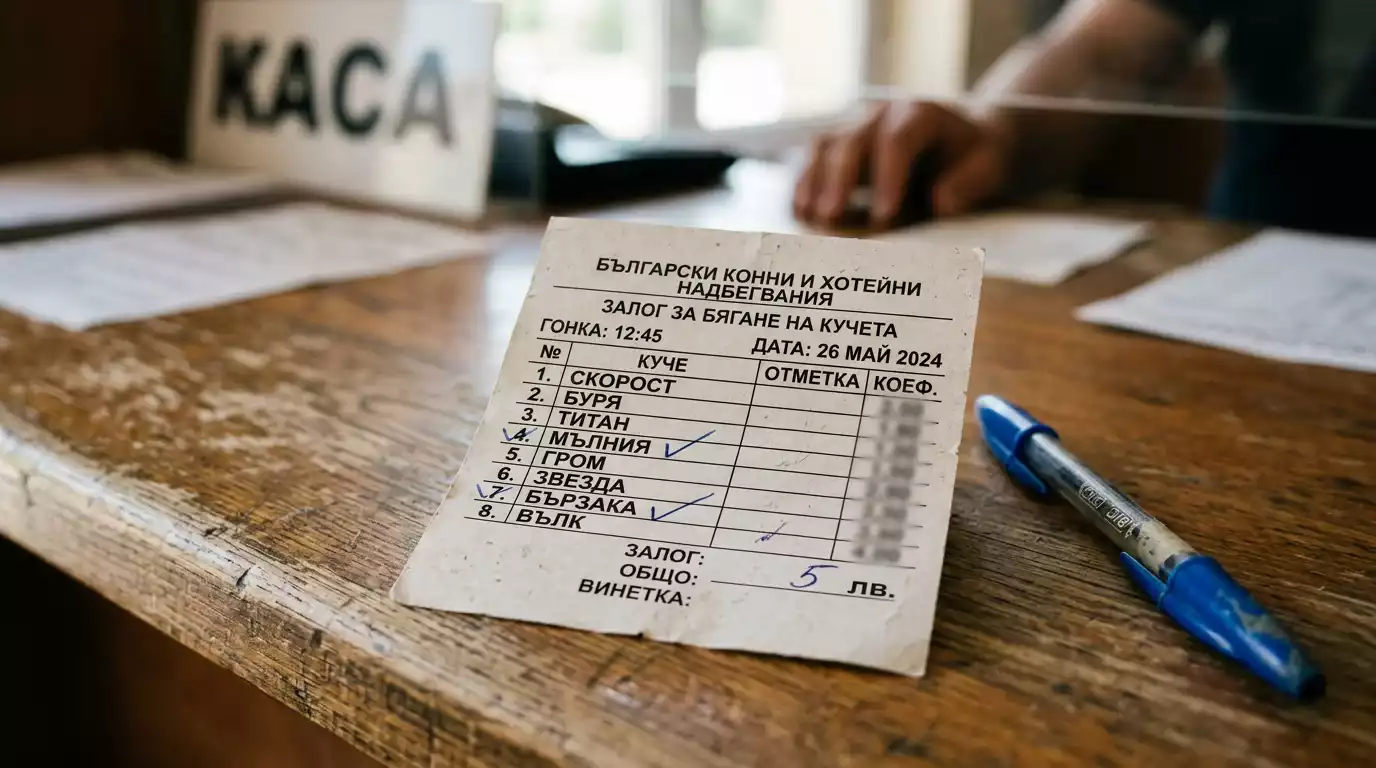 КАСА
БЪЛГАРСКИ КОННИ И ХОТЕЙНИ
НАДБЕГВАНИЯ
ЗАЛОГ ЗА БЯГАНЕ НА КУЧЕТА
ГОНКА: 12:45 ДАТА: 26 МАЙ 2024
№ КУЧЕ ОТМЕТКА КОЕФ.
1. СКОРОСТ
2. БУРЯ
3. ТИТАН
4. МЪЛНИЯ
5. ГРОМ
6. ЗВЕЗДА
7. БЪРЗАКА
8. ВЪЛК
ЗАЛОГ:
ОБЩО: 5 ЛВ.
ВИНЕТКА: